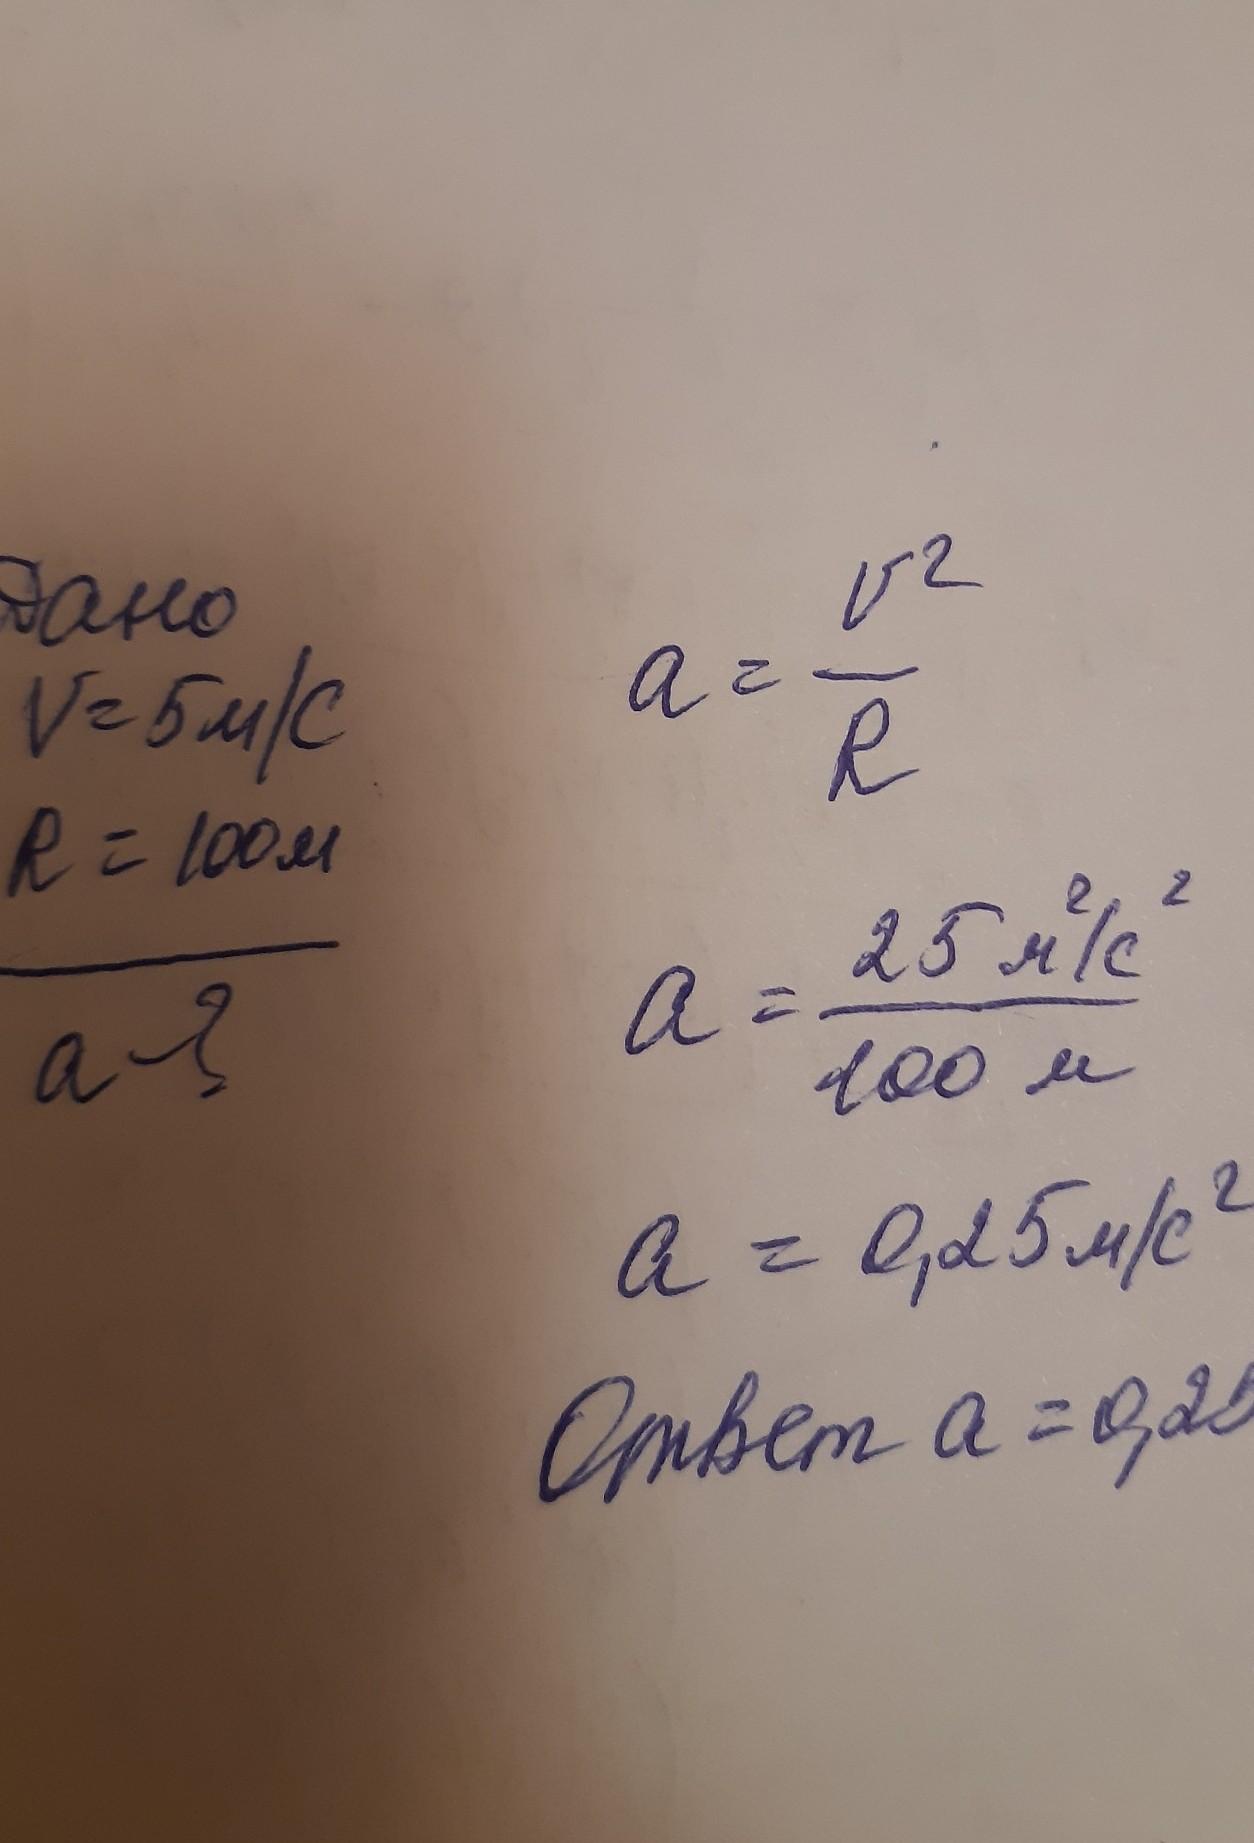 Дано
V=5м/с
R=100м
a-?
a = V²/R
a = 25 м²/с² / 100 м
a = 0,25 м/с²
Ответ a = 0,25